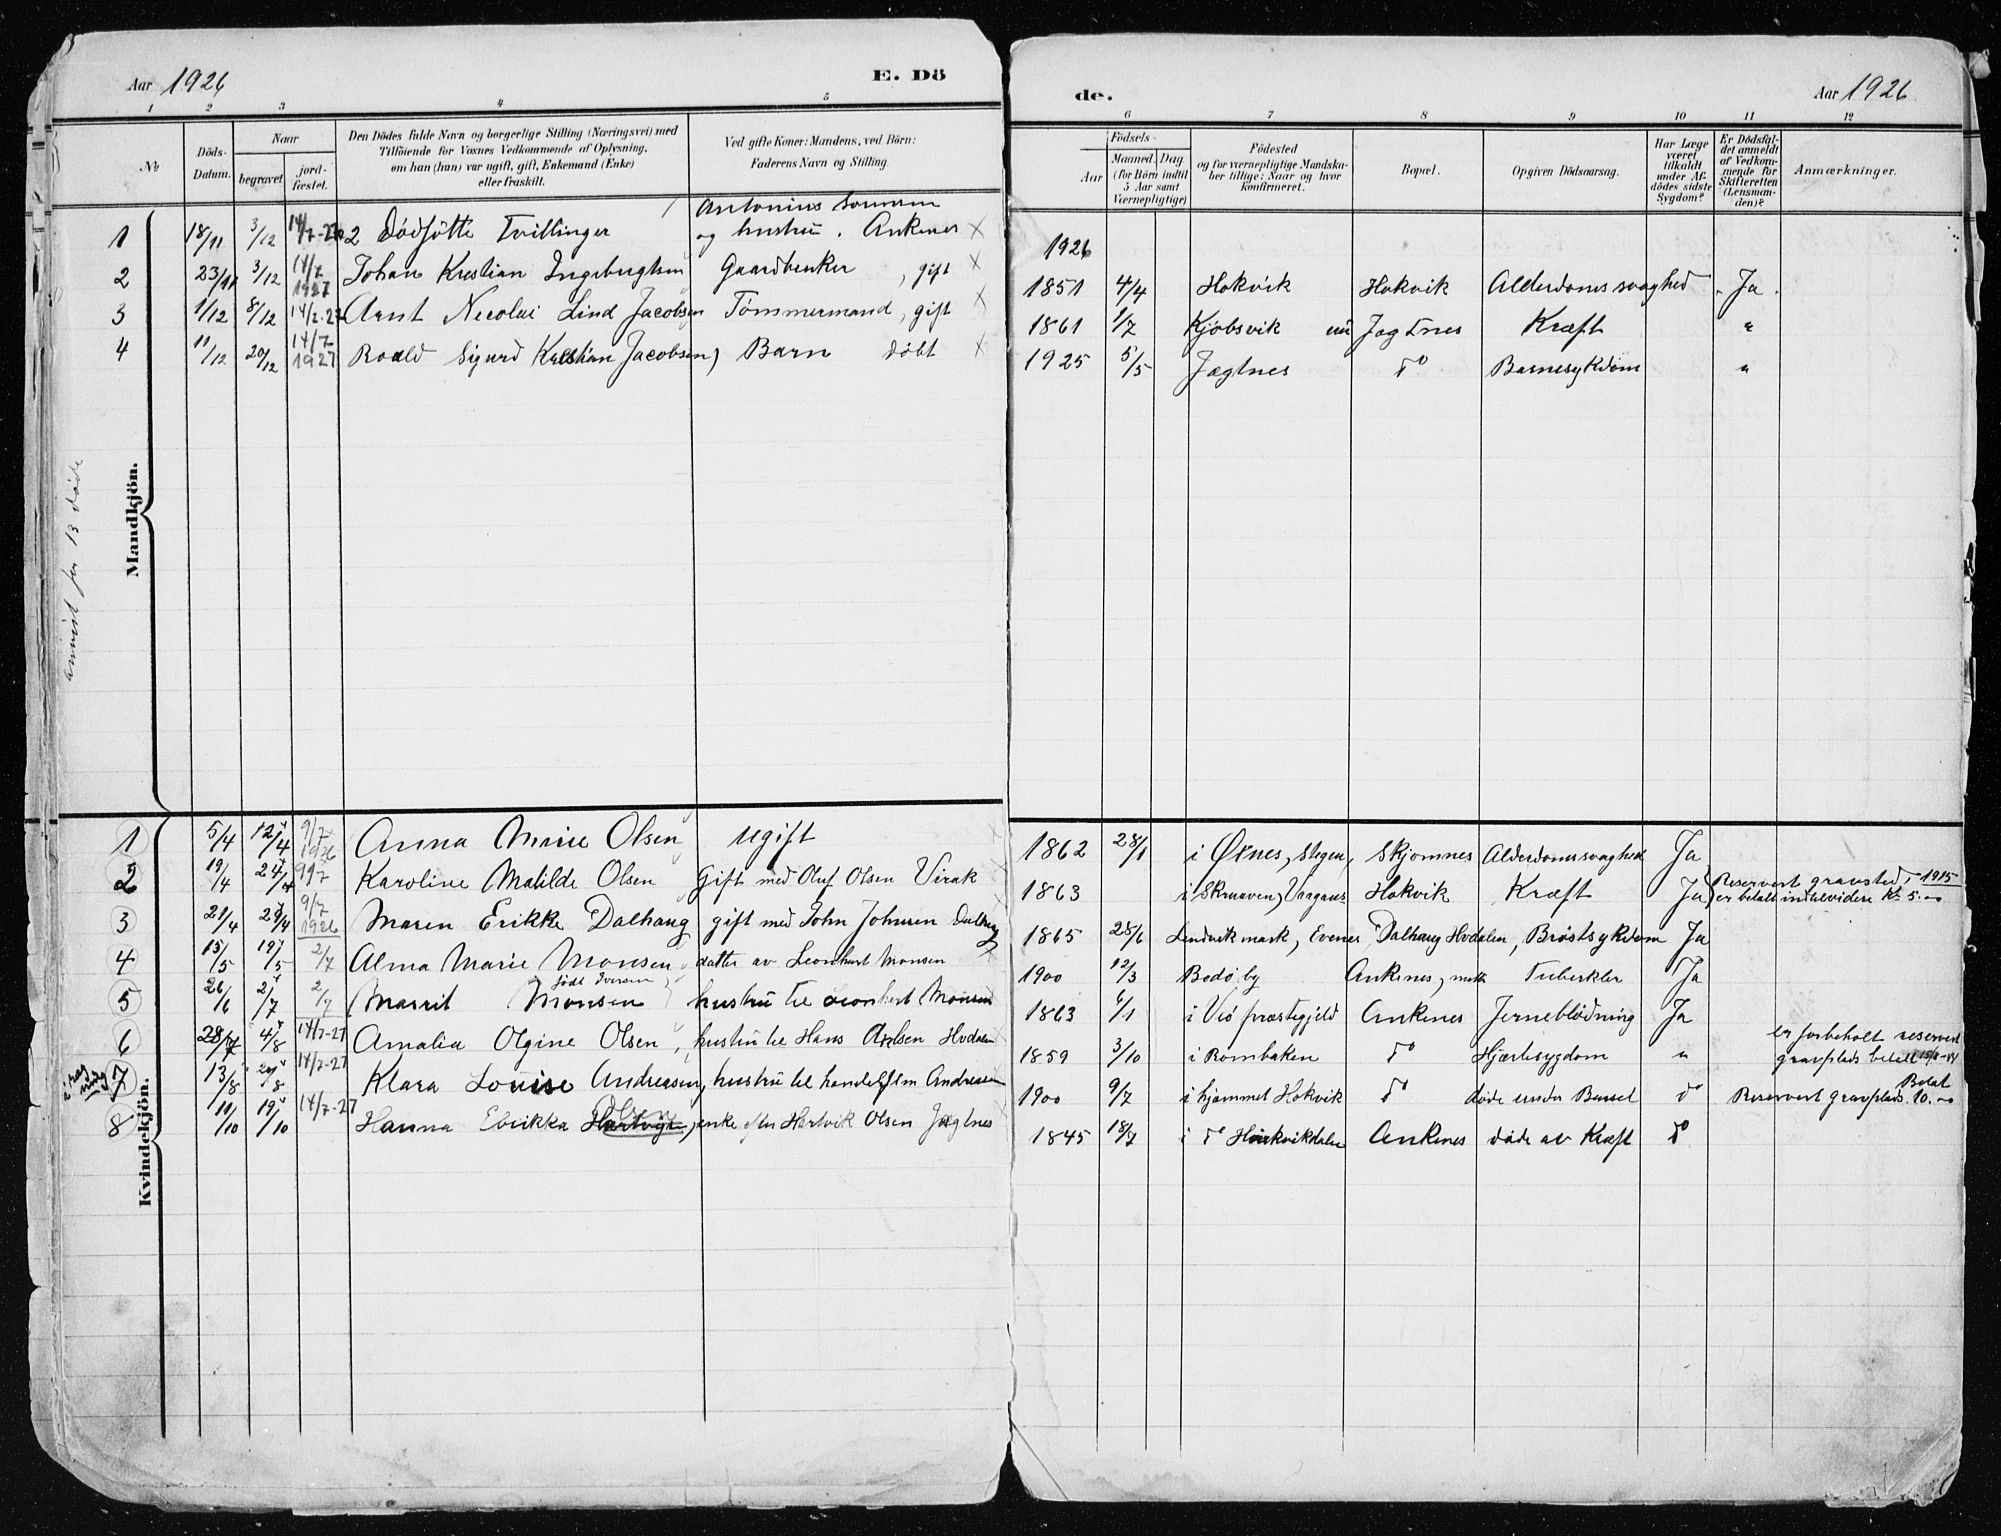 Aar 1926 E. Dö de. Aar 1926.
1 2 3 4 5 6 7 8 9 10 11 12
№ Döds-Datum. Naar begravet. jord-fæstet. Den Dödes fulde Navn og borgerlige Stilling (Næringsvei) med Tilföiende for Voxnes Vedkommende af Oplysning, om han (hun) var ugift, gift, Enkemand (Enke) eller fraskilt. Ved gifte Koner: Mandens, ved Börn: Faderens Navn og Stilling. Födsels- Aar Maaned. Dag. (for Börn indtil 5 Aar samt Værnepligtige) Födested og for værnepligtige Mandskaber tillige: Naar og hvor konfirmeret. Bopæl. Opgiven Dödsaarsag. Har Læge været tilkaldt under Afdödes sidste Sygdom? Er Dödsfaldet anmeldt af Vedkommende for Skifteretten (Lensmanden)? Anmærkninger.
Mandkjön.
1 18/11 3/12 14/7-27 2 Dödfötte Tvillinger Antonius og hustru. Ankenes X 1926
2 23/11 3/12 14/7 1927 Johan Kristian Ingebrigtsen Gaardbruker, gift X 1851 4/4 Hokvik Hokvik Alderdomssvaghed Ja.
3 1/12 8/12 14/7-27 Arnt Nicolai Lind Jacobsen Tømmermand, gift X 1861 1/7 Kjöbsvik Jagtnes Kræft "
4 11/12 20/12 14/7-1927 Roald Sigurd Kristian Jacobsen, Barn döbt X 1925 5/5 Jægtnes do Barnesykdom "
13 døde
Kvindekjön.
1 5/4 12/4 9/7 1926 Anna Marie Olsen ugift 1862 28/1 i Øknes, Stegen, Skjomnes Alderdomssvaghed Ja
2 19/4 24/4 9/7 Karoline Matilde Olsen Gift med Oluf Olsen Virak 1863 i Skraaven, Vaagan Hokvik Kræft Ja Reservert gravsted, 1915 er betalt indtilvidere Kr 5.00
3 21/4 29/4 9/7 1926 Maren Erikke Dalhaug gift med John Johnsen Dalhaug 1865 28/6 Lendvikmark, Evenes, Dalhaug Hvdalen, Bröstsykdom Ja
4 15/5 19/5 2/7 Alma Marie Monsen datter av Leonhart Monsen 1900 12/3 Bodö by Ankenes, Tuberkler Ja
5 26/6 2/7 2/7 Marrit Monsen född Iversen, hustru til Leonhart Monsen 1863 6/1 i Vio præstegjeld Ankenes Jerneblødning Ja
6 28/7 4/8 14/7-27 Amalia Olgine Olsen, hustru til Hans Olsen 1859 3/10 i Rombaken do Hjærtesygdom " er forbeholt reservert gravplads betalt
7 13/8 20/8 14/7-27 Klara Louise Andreasen, hustru til handelsm Andreasen 1900 9/7 i hjemmet Hokvik do døde under Barsel do Reservert gravplads. Betalt 10.00
8 11/10 19/10 14/7-27 Hanna Erikka Hartvigs Olsen, enke efter Hartvik Olsen Jægtnes 1845 18/7 i do Hokvikdalen Ankenes døde av Kræft do